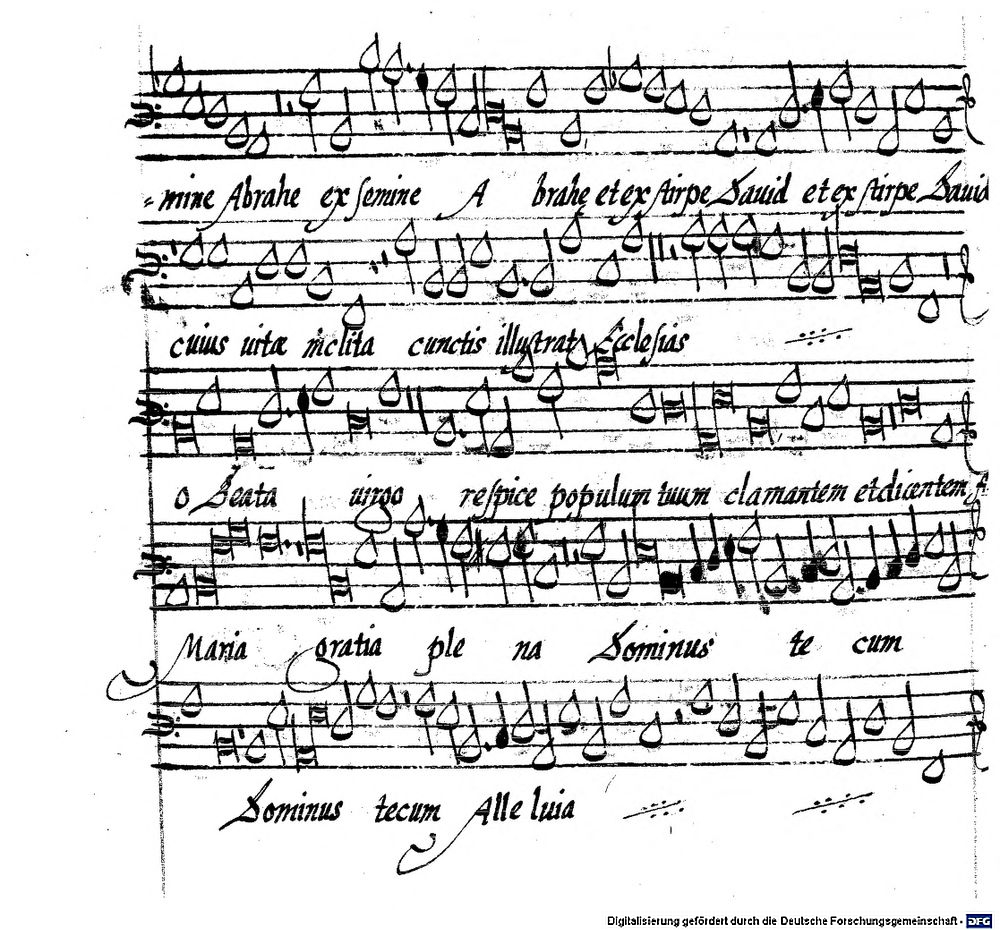 -mine Abrahe ex semine A brahe et ex stirpe Dauid et ex stirpe Dauid
cuius uita inclita cunctis illustrat Ecclesias
o Beata uirgo respice populum tuum clamantem et dicentem
Maria gratia ple na Dominus te cum
Dominus tecum Alle luia
Digitalisierung gefördert durch die Deutsche Forschungsgemeinschaft - DFG